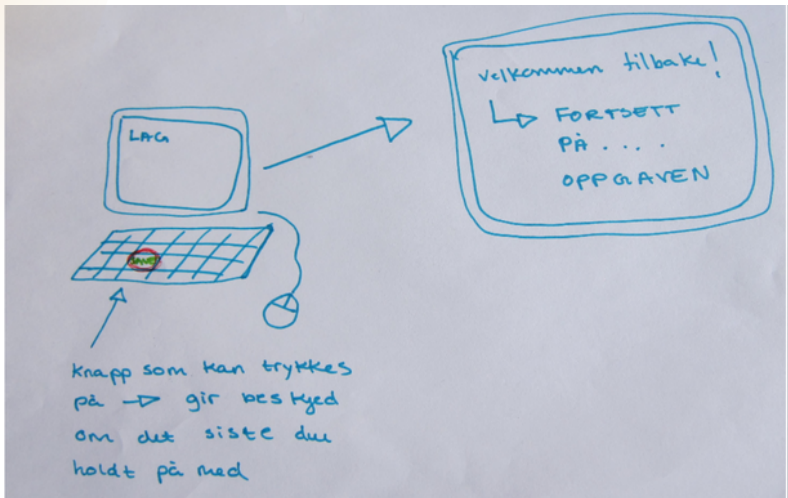 LAG
SAVE
velkommen tilbake!
FORTSETT
PÅ ....
OPPGAVEN
Knapp som kan trykkes
på → gir beskjed
om det siste du
holdt på med